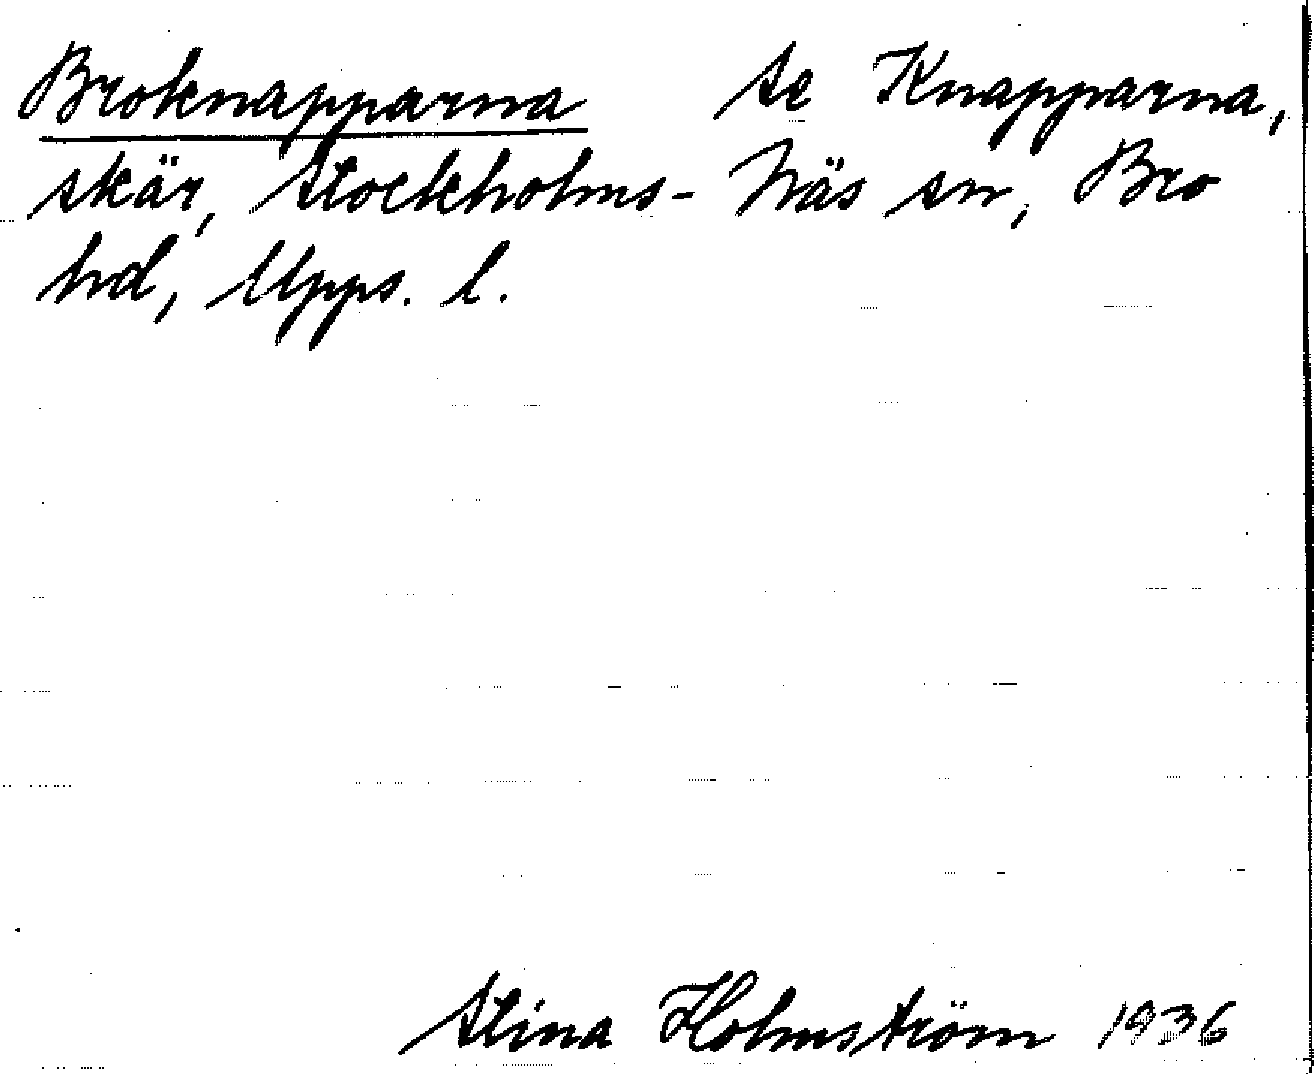 Broknapparna se Knapparna,
skär, Stockholms-Näs sn, Bro
hd, Upps. l.
Stina Holmström 1936